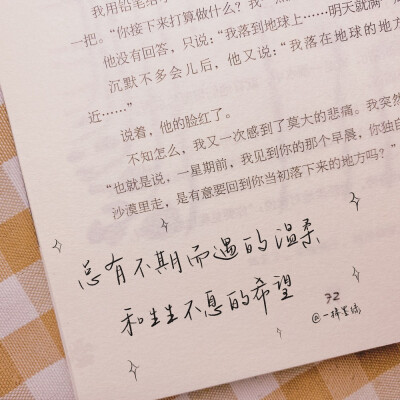 我用铅笔给
一把。“你接下来打算做什么？我
他没有回答，只说：“我落到地球上……明天就满
沉默不多会儿后，他又说：“我落在地球的地方
近……”
说着，他的脸红了。
不知怎么，我又一次感到了莫大的悲痛。我突然
“也就是说，一星期前，我见到你的那个早晨，你独自
沙漠里走，是有意要回到你当初落下来的地方吗？”
总有不期而遇的温柔
和生生不息的希望
32